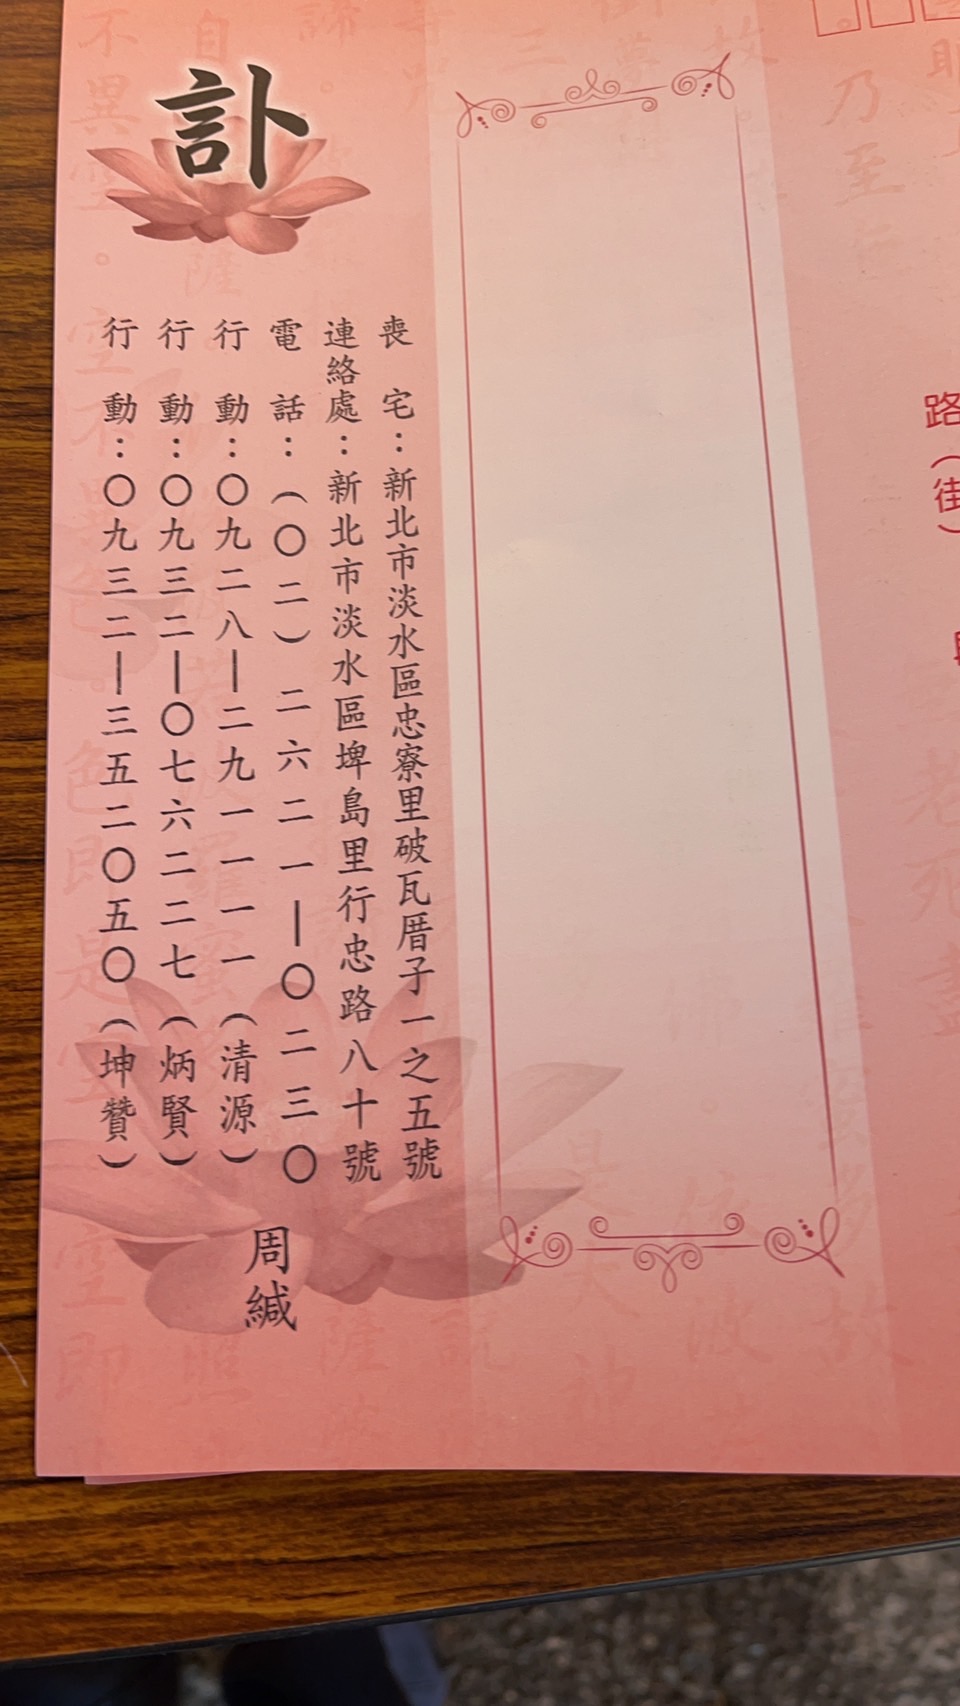 訃
喪宅：新北市淡水區忠寮里破瓦厝子一之五號
連絡處：新北市淡水區埤島里行忠路八十號
電話：（〇二）二六二一－〇二三〇
行動：〇九二八－二九一一一一（清源）
行動：〇九三二－〇七六二二七（炳賢）
行動：〇九三二－三五二〇五〇（坤贊）
周緘
路（街）